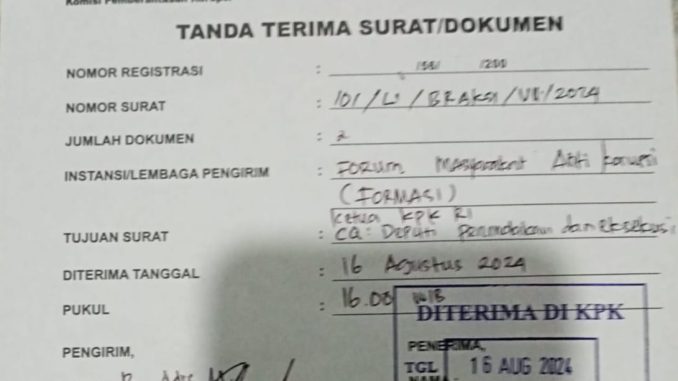 TANDA TERIMA SURAT/DOKUMEN
NOMOR REGISTRASI :
NOMOR SURAT : 101/L1/BRAKSI/VII/2024
JUMLAH DOKUMEN : 2
INSTANSI/LEMBAGA PENGIRIM : Forum Masyarakat Anti korupsi
(FORMASI)
Ketua KPK RI
TUJUAN SURAT : CQ: Deputi Penindakan dan Eksekusi
DITERIMA TANGGAL : 16 Agustus 2024
PUKUL : 16.00 WIB
DITERIMA DI KPK
PENGIRIM,
PENERIMA,
TGL 16 AUG 2024
NAMA